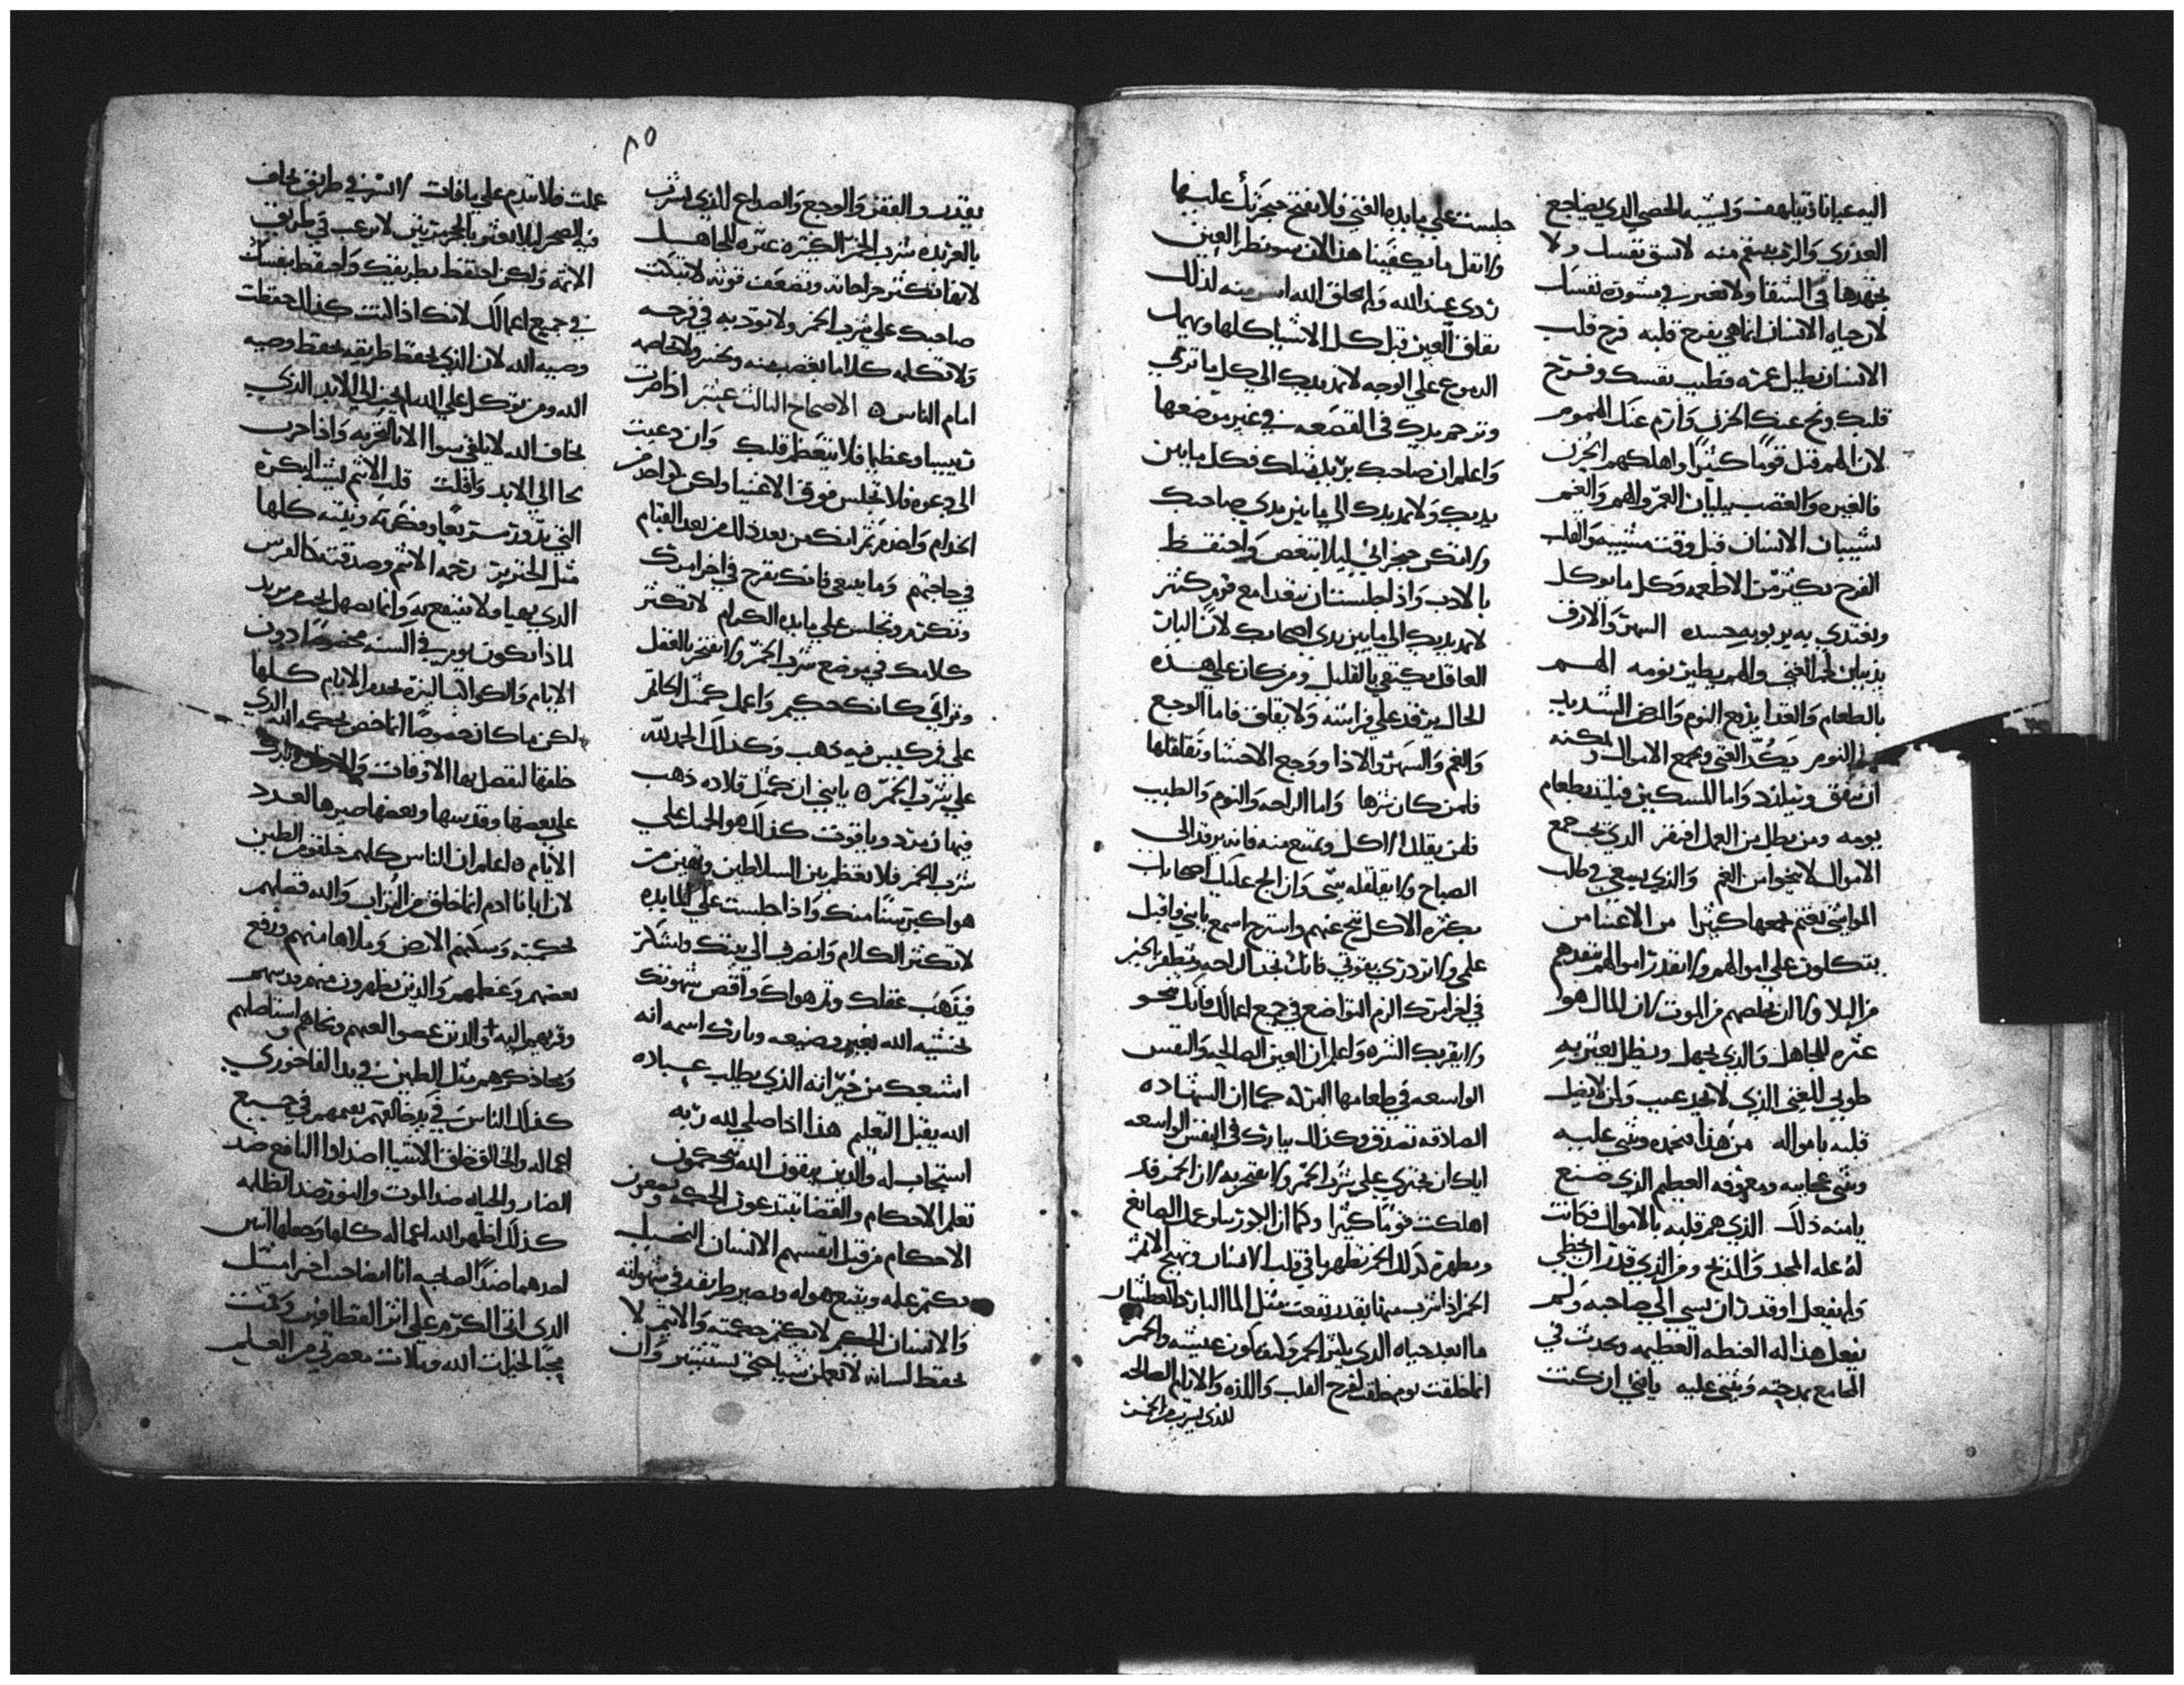 اليه عيانا فيتلهف ويشبه الخصي الذي يضاجع
العذري والرب ينتقم منه لا تسق نفسك ولا
تجهدها في الشقا ولا تعبر في مشورة نفسك
لان حياه الانسان انما هي بفرح قلبه فرح قلب
الانسان يطيل عمره فطيب نفسك وفرح
قلبك ونح عنك الحزن وارم عنك الهموم
لان الهم قتل قوما كثيرا واهلكهم الحزن
فالغيره والغضب يبليان العمر والهم والغم
يشيبان الانسان قبل وقت مشيبه والقلب
الفرح يكثر من الاطعمه وكل ما يوكل
ويغتدي به يربو به جسده السهر والارق
يذيبان لحم الغني والهم يطير نومه الهم
بالطعام والغدا يذيع النوم والمرض الشديد
النوم يكد الغني ويجمع الاموال ولكنه
ان ينفق ويتلذد واما المسكين فيلتذ بطعام
يومه ومن بطل من العمل افتقر الذي يحب جمع
الاموال لا ينجوا من الغم والذي يسعي في طلب
المواشي يغتم لجمعها كثيرا من الاغنيا من
يتكلون علي اموالهم ولا تقدر اموالهم تنقدهم
من البلا ولا ان تخلصهم من الموت لان المال هو
عثره للجاهل والذي يجهل ويضل يعثر به
طوبي للغني الذي لا يجد عيب ولن لا يضل
قلبه بامواله من هذا فنمجده ونثني عليه
ونثني عجايبه ومعروفه العظيم الذي صنع
يامنه ذلك الذي هم قلبه بالاموال فكانت
له عله المجد والمدح ومن الذي قدر ان يخطي
ولم يفعل او قدر ان يسي الي صاحبه ولم
يفعل هذا له الغبطه العظيمه ويحدث في
المجامع بمدحته ويثني عليه يابني ان كنت
جلست علي مايده الغني فلا تفتح حنجرتك عليها
ولا تقل ما يكفينا هذا لان سو نظر العين
ردي عند الله ولم يخلق الله اشر منه لذلك
تقلق العين قبل كل الاشيا كلها وتهمل
الدموع علي الوجه لا تمد يدك الي كل ما تري
وتزحم يدك في القصعه في غير موضعها
واعلم ان صاحبك يريد مثلك فكل ما بين
يديك ولا تمد يدك الي ما بين يدي صاحبك
ولا تكن حنجراني ليلا تنغص واحتفظ
بالادب واذا جلست تتغدا مع قوم كثير
لا تمد يديك الي ما بين يدي اصحابك لان البار
العاقل يكتفي بالقليل ومن كان علي هذه
الحال يرقد علي فراشه ولا يقلق فاما الوجع
والغم والسهر والاذا ووجع الاحشا وتقلقلها
فلمن كان شرها واما الراحه والنوم والطيب
فلمن يقلل الاكل ويمتنع منه فانه يرقد الي
الصباح ولا يقلقله شي وان الح عليك اصحابك
بكثره الاكل تنح عنهم واسترح اسمع يابني واقبل
علمي ولا تزدري بقولي فانك تجد الراحه وتظفر بالخير
في اخر امرك الزم التواضع في جميع اعمالك فانك تنجو
ولا يقربك الشره واعلم ان العين الصالحه والنفس
الواسعه في طعامها البركه كما ان الشهاده
الصادقه تصدق وكذلك يبارك في النفس الواسعه
اياك ان تجتري علي شرب الخمر ولا تفتخر به لان الخمر قد
اهلكت قوما كثيرا وكما ان الجوز يبلو عمل الصايغ
ويطهره كذلك الخمر تظهر ما في قلب الانسان وتهيج الاثم
الخمر اذا شرب منها بقدر نفعت مثل الما البارد للعطشان
ما ابعد حياه الذي يكثر الخمر ولن يكون عيشه والخمر
انما خلقت يوم خلقت لفرح القلب واللذه والايام الصالحه
للذي يشرب من الخمر
٨٥
بقدر والفقر والوجع والصداع للذي يشرب
بالعربده شرب الخمر الكثيره عثره للجاهل
لانها تكثر جراحاته وتضعف قوته لا تبكت
صاحبك علي شرب الخمر ولا توديه في فرحه
ولا تكلمه كلاما يغضب منه ويخسر ولا تخاصمه
امام الناس الاصحاح الثالث عشر اذا صرت
تيبيبا وعظيا فلا يتعظم قلبك وان دعيت
الي دعوه فلا تجلس فوق الاغنيا ولكن كواحد من
الخدام واخدم ثم اتك من بعد ذلك من بعد القيام
في حاجتهم وما ينبغي فانك تفرح في اخر امرك
وتكرم وتجلس علي مايده الكرام لا تكثر
كلامك في موضع شرب الخمر ولا تفتخر بالعقل
وتراي كانك حكيم واعمل كمثل الخاتم
علي فم كيس فيه ذهب وكذلك الحمد لله
علي شرب الخمر يابني ان كمثل قلاده ذهب
فيها زمرد وياقوت كذلك هو الجميل علي
شرب الخمر فلا تعظم بين السلاطين وتهين من
هو اكبر سنا منك واذا جلست علي المايده
لا تكثر الكلام وانصرف الي بيتك ولا تسكر
فيذهب عقلك وتم هواك واقض شهوتك
بخشية الله بغير وضيعه وبارك اسمه انه
اشبعك من خيراته الذي يطلب عباده
الله يقبل التعليم هذا اذا صلي لله ربه
استجاب له والدين يتقون الله يحكمون
تعلم الاحكام والقضا يبتدعون الحكمه ويتبعون
الاحكام من قبل انفسهم الانسان النحيل
يكتم علمه ويتبع هوله ويصير طريقه في شهوته
والانسان الحكيم لا يكتم حكمته والاثيم لا
يحفظ لسانه لا تعمل شيا حتي تستشير وان
عملت فلا تندم علي ما فات لا تسر في طريق تخاف
فيه الصخر ليلا تعثر بالحجر مرتين لا ترغب في طريق
الاثمه ولكن احتفظ بطريقك واحتفظ بنفسك
في جميع اعمالك لانك اذا كنت كذلك حفظت
وصيه الله لان الذي يحفظ طريقه يحفظ وصيه
الله ومن توكل علي الله لم يخزا الي الابد الذي
يخاف الله لا يلقي سوا الا بالتجربه واذا جرب
نجا الي الابد وافلت قلب الاثيم يشبه البكره
التي تدور سريعا وفكرته ونيته كلها
مثل الخنزير رحمه الاثيم وصدقته كالفرس
الذي يهيا ولا ينتفع به وانما يصهل تحت من يريد
لماذا يكون يوم في السنه مخصوصا دون
الايام والكواكب النيره تخدم الايام كلها
لكن ما كان خصوصا انما خص بحكمه الله الذي
خلقها لتفصل بها الاوقات
علي بعضها وقدسها وبعضها صيرها لعدد
الايام اعلم ان الناس كلهم خلقو من الطين
لان ابانا ادم انما خلق من التراب والله فصلهم
بحكمته وسكنهم الارض وملاها منهم ورفع
بعضهم وعظمهم والذين يطهرون منهم قدسهم
وقربهم اليه والذين عصوا لعنهم ونحاهم استاصلهم
ومحا ذكرهم مثل الطين في يد الفاخوري
كذلك الناس في يد خالقهم يعمهم في جميع
اعماله والخالق خلق الاشيا اضدادا النافع ضد
الضار والحياه ضد الموت والنور ضد الظلمه
كذلك اظهر الله اعماله كلها وجعلها اثنين
احدهما ضدا لصاحبه انا ايضا جيت اخيرا مثل
الذي اتي الكرم علي اثر القطافين وقمت
مجبا لخيرات الله وملات معصرتي من العلم